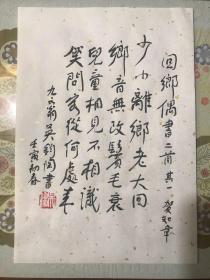 回鄉偶書 二首其一 賀知章
少小離鄉老大回
鄉音無改鬢毛衰
兒童相見不相識
笑問客從何處来
九五翁吳鈞陶書
壬寅初春